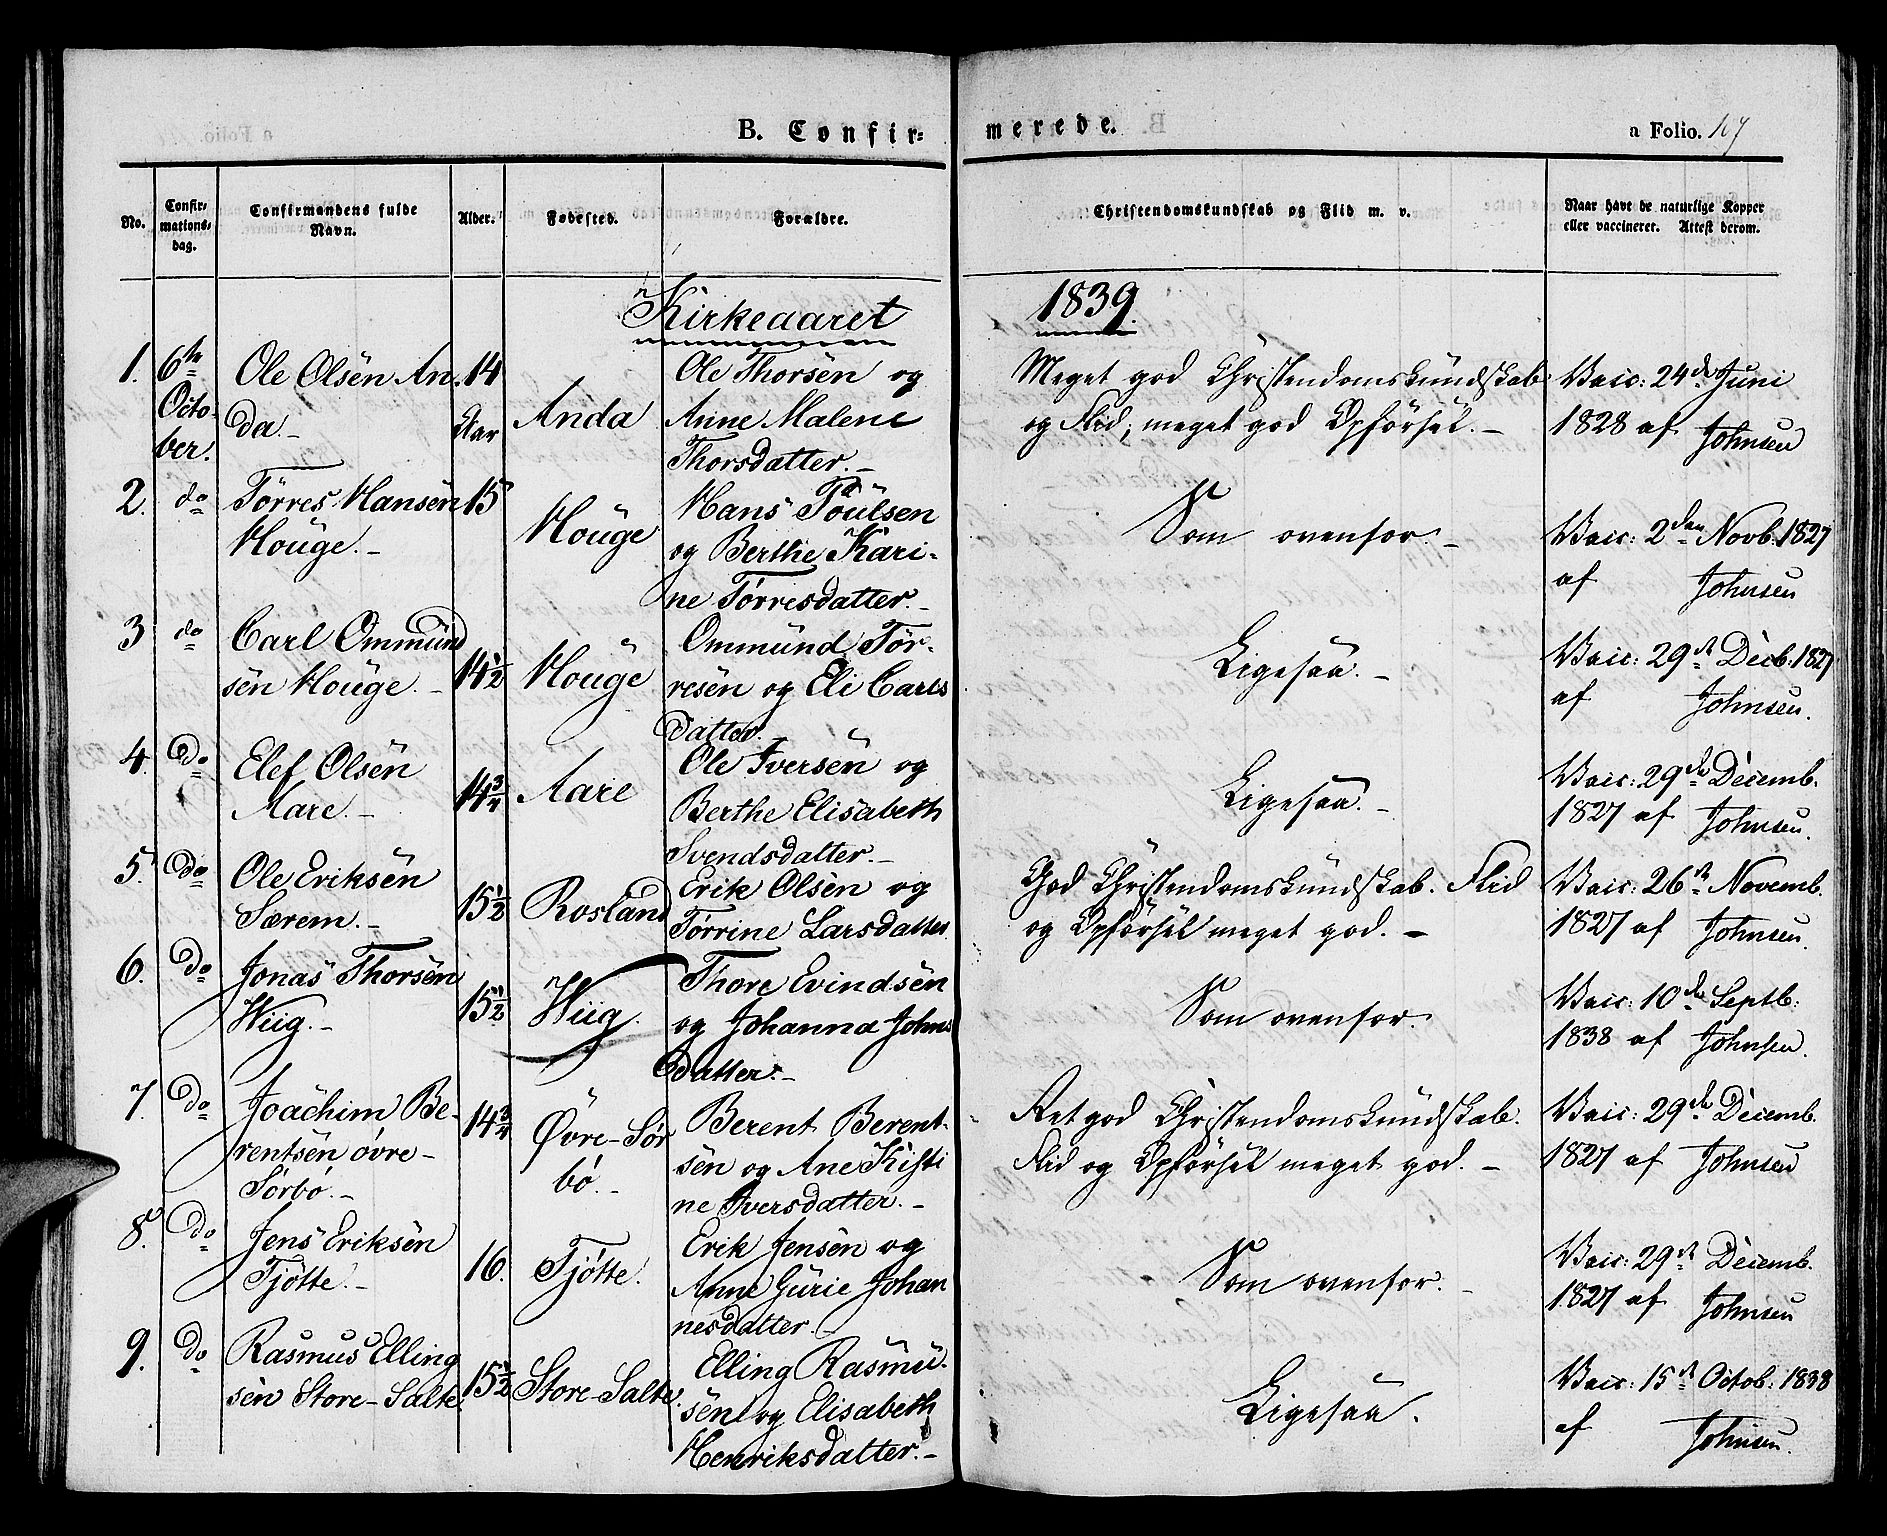 B. Confir-
merede.
a Folio. 117
No.
Confir-
mations-
dag.
Confirmandens fulde
Navn.
Alder.
Fødested.
Forældre.
Christendomskundskab og Flid m. v.
Naar havt de naturlige Kopper
eller vaccineret. Attest derom.
Kirkeaaret
1839.
1. 6te Ole Olsen An- 14 Ole Thorsen og Meget god Christendomskundskab Vacc: 24de Juni
Octo- da.- Aar Anda Anne Malene og Flid, meget god Opførsel.- 1828 af Johnsen
ber. Thorsdatter.-
2. do Tørres Hansen 15 Houge Hans Poulsen Som ovenfor.- Vacc: 2den Novb: 1827
Houge.- og Berthe Kari- af Johnsen
ne Tørresdatter.-
3 do Carl Ommund 14½ Houge Ommund Tør- Ligesaa.- Vacc: 29de Decb: 1827
sen Houge.- resen og Eli Carls af Johnsen.
datter.
4. do Elef Olsen 14¾ Aare Ole Iversen og Ligesaa.- Vacc: 29de Decemb.
Aare.- Berthe Elisabeth 1827 af Johnsen.
Svendsdatter.-
5. do Ole Eriksen 15½ Rosland Erik Olsen og God Christendomskundskab. Flid Vacc: 26de Novemb.
Særem.- Tørrine Larsdatter og Opførsel meget god.- 1827 af Johnsen.
6. do Jonas Thorsen 15½ Wiig. Thore Evindsen Som ovenfor. Vacc: 10de Septb:
Wiig.- og Johanna Johns 1838 af Johnsen.
datter.-
7. do Joachim Be- 14¾ Øvre-Sør Berent Berent- Ret god Christendomskundskab. Vacc: 29de Decemb.
rentsen øvre- bø.- sen og Ane Kisti Flid og Opførsel meget god.- 1827 af Johnsen
Sørbø.- ne Iversdatter.-
8. do Jens Eriksen 16. Tjøtte. Erik Jensen og Som ovenfor.- Vacc: 29de Decemb.
Tjøtte.- Anne Gurie Johan 1827 af Johnsen
nesdatter.
9. do Rasmus Elling 15½ Store-Salte. Elling Rasmu- Ligesaa. Vacc: 15de Octob: 1838
sen Store-Salte. sen og Elisabeth af Johnsen.
Henriksdatter.-